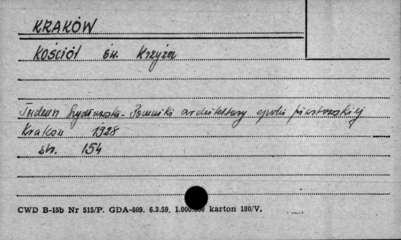 KRAKÓW
KOŚCIÓŁ św. Krzyża
Szydłowska - Pomniki architektury epoki piastowskiej
Kraków 1928
str. 154
CWD B-15b Nr 515/P. GDA-809. 6.3.59, 1.000.000 karton 180/V.